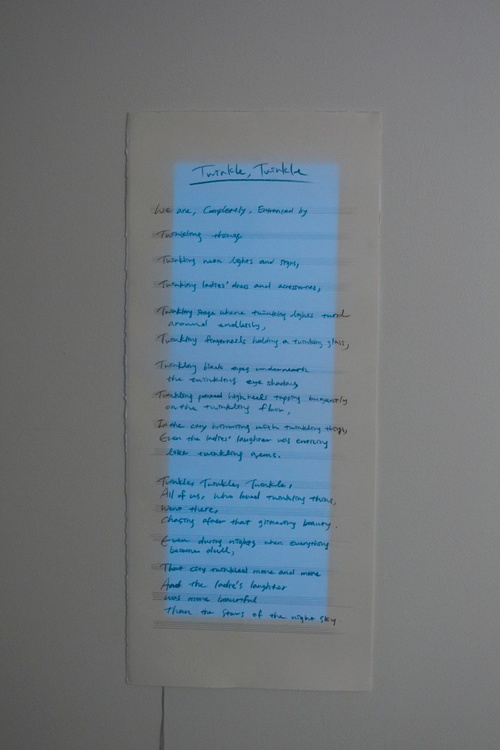 Twinkle, Twinkle
We are, Completely, Entranced by
Twinkling things
Twinkling neon lights and signs,
Twinkling ladies' dress and accessories,
Twinkling stage where twinkling lights turned
around endlessly,
Twinkling fingernails holding a twinkling glass,
Twinkling black eyes underneath
the twinkling eye shadow,
Twinkling pointed high heels tapping
on the twinkling floor,
In the city brimming with twinkling things,
Even the ladies' laughter was enticing
like twinkling gems.
Twinkle, Twinkle, Twinkle,
All of us, who loved twinkling things,
Were there,
Chasing after that glittering beauty.
Even during nights when everything
became dull,
That city twinkled more and more
And the ladie's laughter
was more beautiful
Than the stars of the night sky.